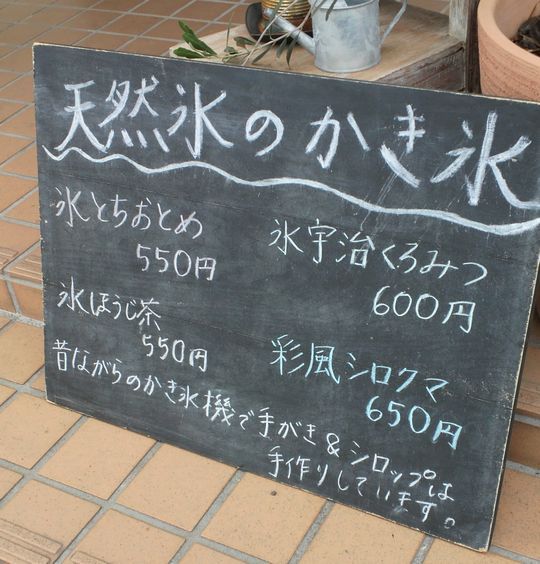 天然氷のかき氷
氷とちおとめ
550円
氷宇治くろみつ
600円
氷ほうじ茶
550円
彩風シロクマ
650円
昔ながらのかき氷機で手がき&シロップは
手作りしています。